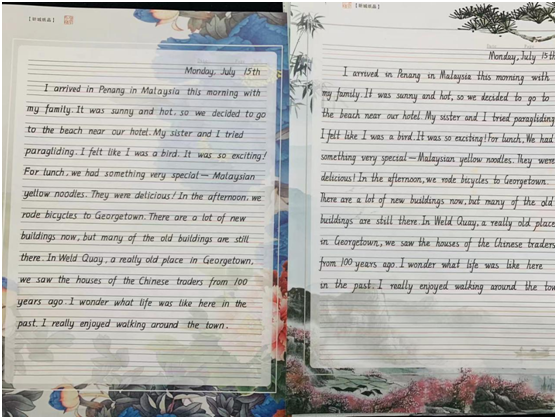 Monday, July 15th
I arrived in Penang in Malaysia this morning with
my family. It was sunny and hot, so we decided to go
to the beach near our hotel. My sister and I tried
paragliding. I felt like I was a bird. It was so exciting!
For lunch, we had something very special — Malaysian
yellow noodles. They were delicious! In the afternoon, we
rode bicycles to Georgetown. There are a lot of new
buildings now, but many of the old buildings are still
there. In Weld Quay, a really old place in Georgetown,
we saw the houses of the Chinese traders from 100
years ago. I wonder what life was like here in the
past. I really enjoyed walking around the town.
Monday, July 15th
I arrived in Penang in Malaysia this morning with
my family. It was sunny and hot, so we decided to go to
the beach near our hotel. My sister and I tried paragliding.
I felt like I was a bird. It was so exciting! For lunch, We had
something very special — Malaysian yellow noodles. They were
delicious! In the afternoon, we rode bicycles to Georgetown.
There are a lot of new buildings now, but many of the old
buildings are still there. In Weld Quay, a really old place
in Georgetown, we saw the houses of the Chinese traders
from 100 years ago. I wonder what life was like here
in the past. I really enjoyed walking around the tow